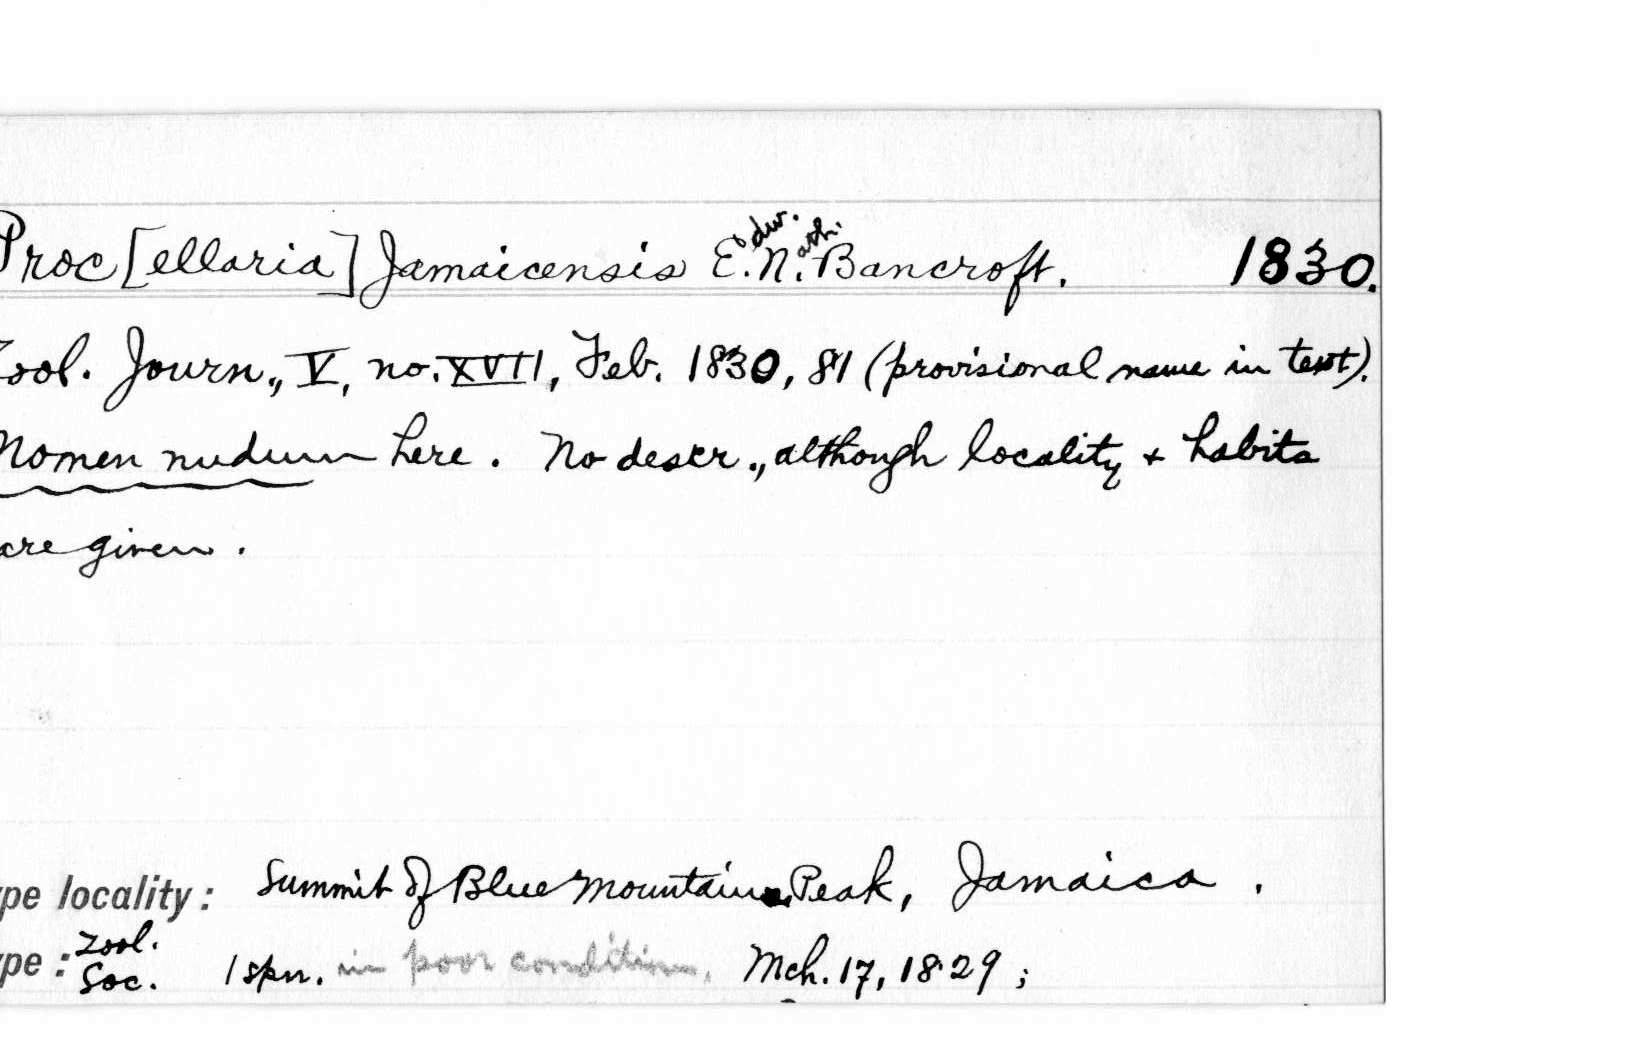 Proc[ellaria] Jamaicensis E.dw. N.ath. Bancroft. 1830.
Zool. Journ., V, no. XVII, Feb. 1830, 81 (provisional name in text).
Nomen nudum here. No descr., although locality + habits
are given.
ype locality: Summit of Blue Mountain Peak, Jamaica.
ype: Zool. Soc. 1 spn. in poor condition, Mch. 17, 1829;